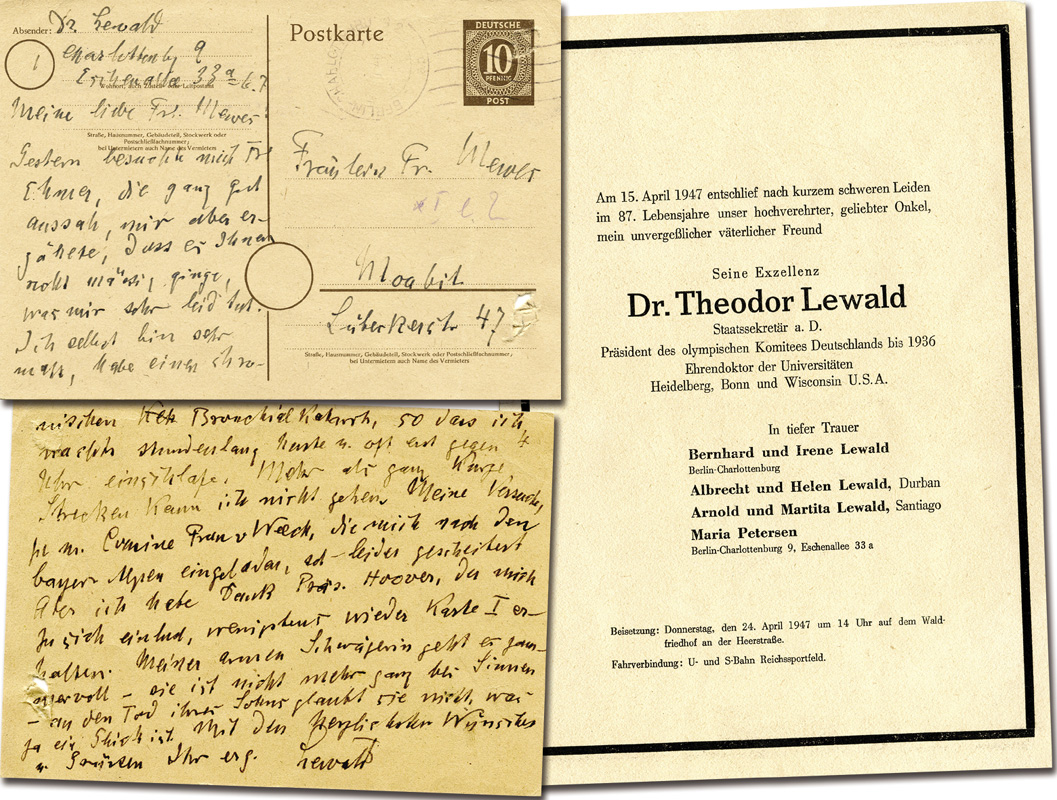 Absender: Dr Lewald
Charlottenbg 9
Eschenallee 33a
Wohnort, auch Zustell- oder Leitpostamt
Meine liebe Frl. Mewes
Straße, Hausnummer, Gebäudeteil, Stockwerk oder
Postschließfachnummer;
bei Untermietern auch Name des Vermieters
Gestern besuchte mich Frl
Ehmer, die ganz gut
aussah, mir aber er-
zählte, dass es Ihnen
nicht mässig ginge,
was mir sehr leid tut.
Ich selbst bin sehr
matt, habe einen chro-
Postkarte
DEUTSCHE
10
PFENNIG
POST
Fräulein Fr. Mewes
Moabit
Lübeckerstr 47
Straße, Hausnummer, Gebäudeteil, Stockwerk oder Postschließfachnummer;
bei Untermietern auch Name des Vermieters
nischen Bronchial Katarrh, so dass ich
nachts stundenlang huste u. oft erst gegen 4
Uhr einschlafe. Mehr als ganz kurze
Strecken kann ich nicht gehen. Meine Versuche,
zu m. Cousine Frau v Weech, die mich nach den
bayer. Alpen eingeladen, ist leider gescheitert
Aber ich habe Dank Präs. Hoover, der mich
zu sich einlud, wenigstens wieder Karte I er-
halten. Meiner armen Schwägerin geht es jam-
mervoll – sie ist nicht mehr ganz bei Sinnen
– an den Tod ihres Sohns glaubt sie nicht, was
ja ein Glück ist. Mit den herzlichsten Wünschen
u Grüssen Ihr erg. Lewald
Am 15. April 1947 entschlief nach kurzem schweren Leiden
im 87. Lebensjahre unser hochverehrter, geliebter Onkel,
mein unvergeßlicher väterlicher Freund
Seine Exzellenz
Dr. Theodor Lewald
Staatssekretär a. D.
Präsident des olympischen Komitees Deutschlands bis 1936
Ehrendoktor der Universitäten
Heidelberg, Bonn und Wisconsin U.S.A.
In tiefer Trauer
Bernhard und Irene Lewald
Berlin-Charlottenburg
Albrecht und Helen Lewald, Durban
Arnold und Martita Lewald, Santiago
Maria Petersen
Berlin-Charlottenburg 9, Eschenallee 33 a
Beisetzung: Donnerstag, den 24. April 1947 um 14 Uhr auf dem Wald-
friedhof an der Heerstraße.
Fahrverbindung: U- und S-Bahn Reichssportfeld.